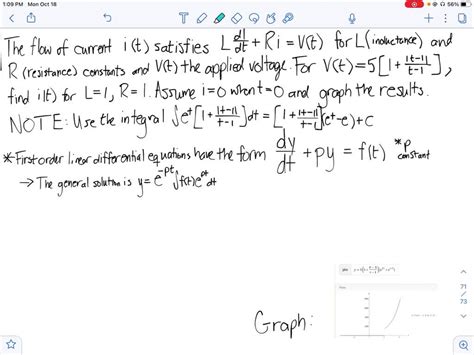 1:09 PM Mon Oct 18
56%
The flow of current i(t) satisfies L di/dt + Ri = V(t) for L (inductance) and
R (resistance) constants and V(t) the applied voltage. For V(t)=5[1+ |t-1|/t-1],
find i(t) for L=1, R=1. Assume i=0 when t=0 and graph the results.
NOTE: Use the integral ∫e^t[1+ |t-1|/t-1]dt = [1+ |t-1|/t-1](e^t-e)+C
*First order linear differential equations have the form dy/dt + py = f(t) *p constant
→ The general solution is y = e^-pt ∫f(t)e^pt dt
71
73
Graph: